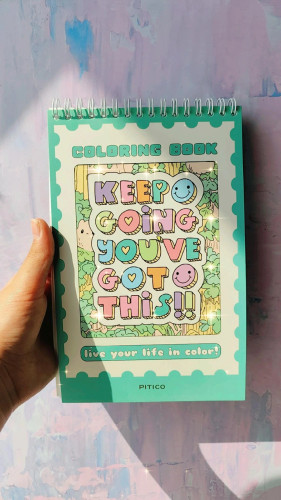 COLORING BOOK
KEEP
GOING
YOU'VE
GOT
THIS!!
live your life in color!
PITICO